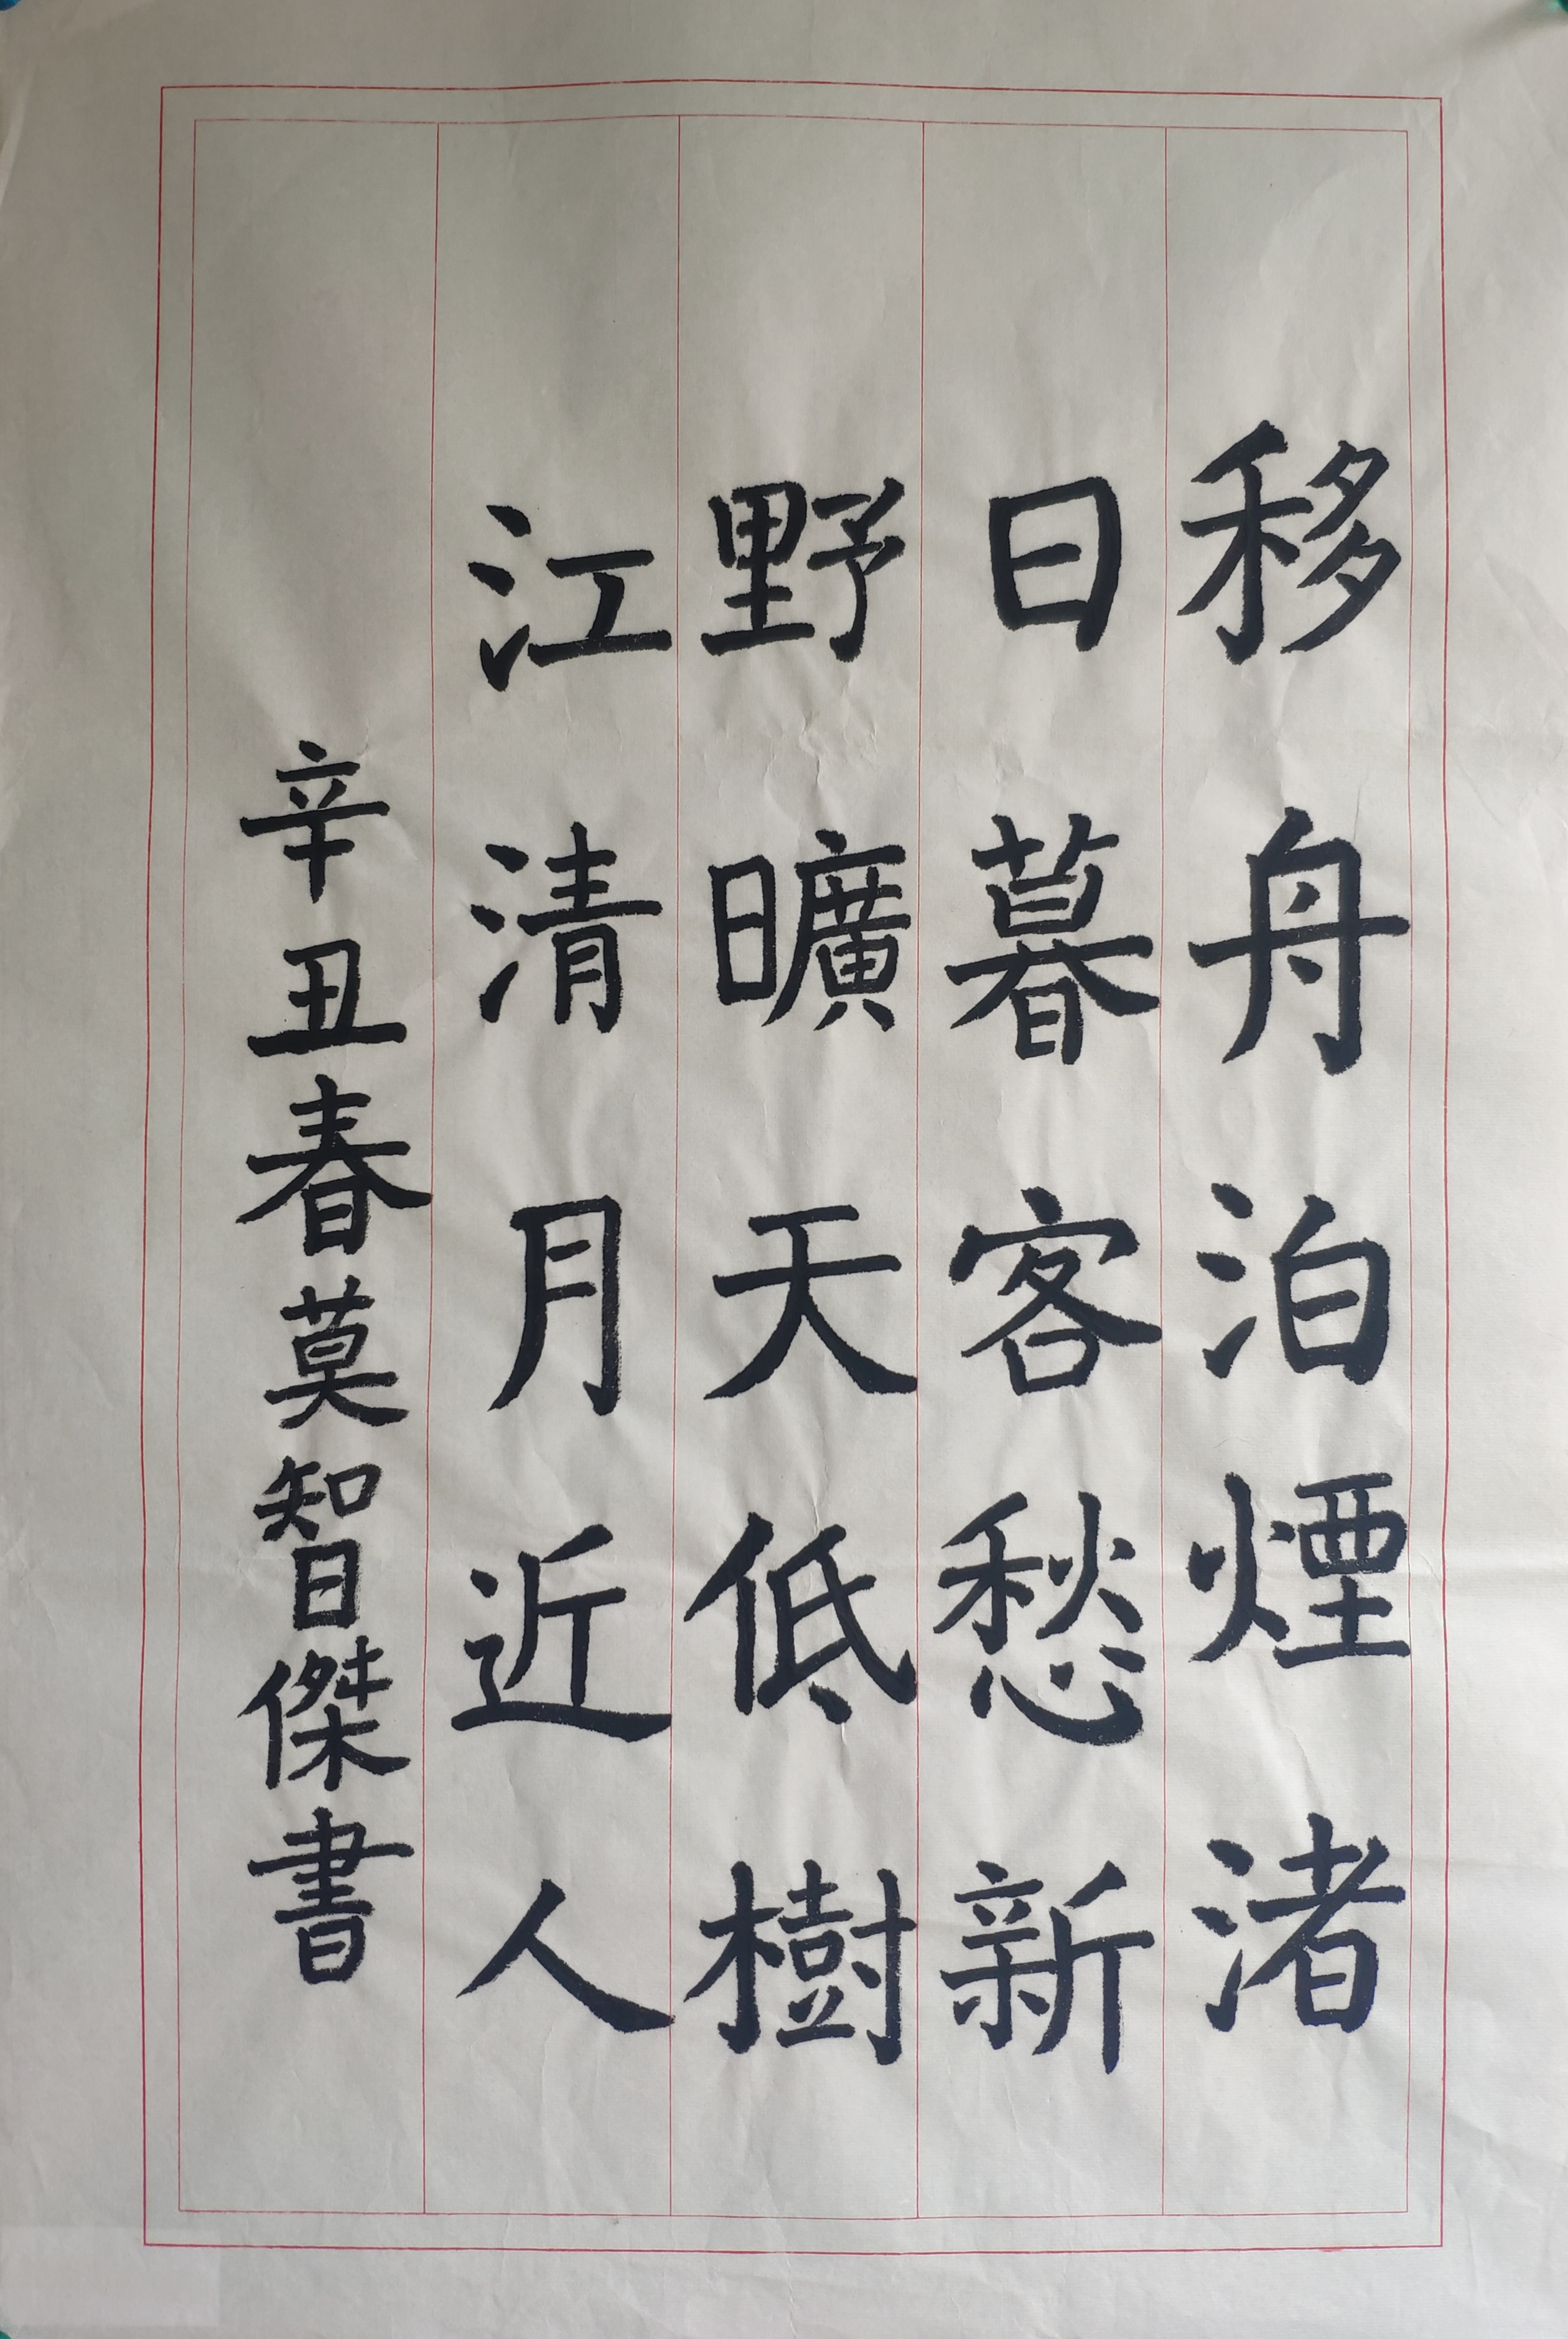 移舟泊煙渚
日暮客愁新
野曠天低樹
江清月近人
辛丑春莫智傑書